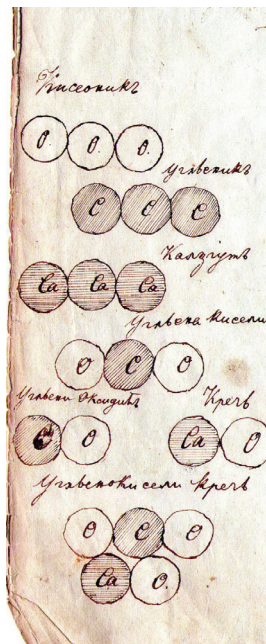 Кисеоникъ
O. O. O.
Угљеникъ
C C C
Калцiумъ
Ca Ca Ca
Угльена кисели
O C O
Угльени Оксидъ
Кречь
C O
Ca O
Угльенокисели кречь
O C O
Ca O.